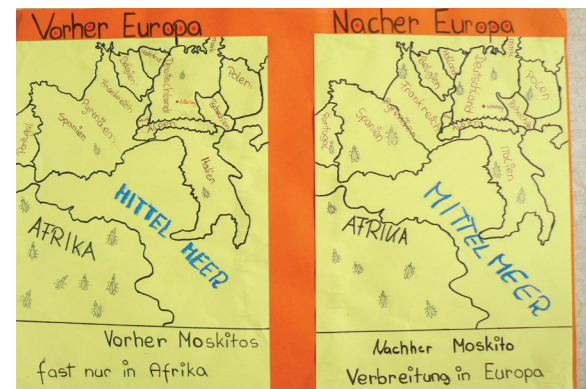 Vorher Europa
Portugal
Spanien
Pyrenäen
Frankreich
Belgien
Deutschland
Polen
Italien
AFRIKA
MITTEL MEER
Vorher Moskitos
fast nur in Afrika
Nacher Europa
Portugal
Spanien
Pyrenäen
Frankreich
Belgien
Deutschland
Polen
Italien
AFRIKA
MITTELMEER
Nachher Moskito
Verbreitung in Europa